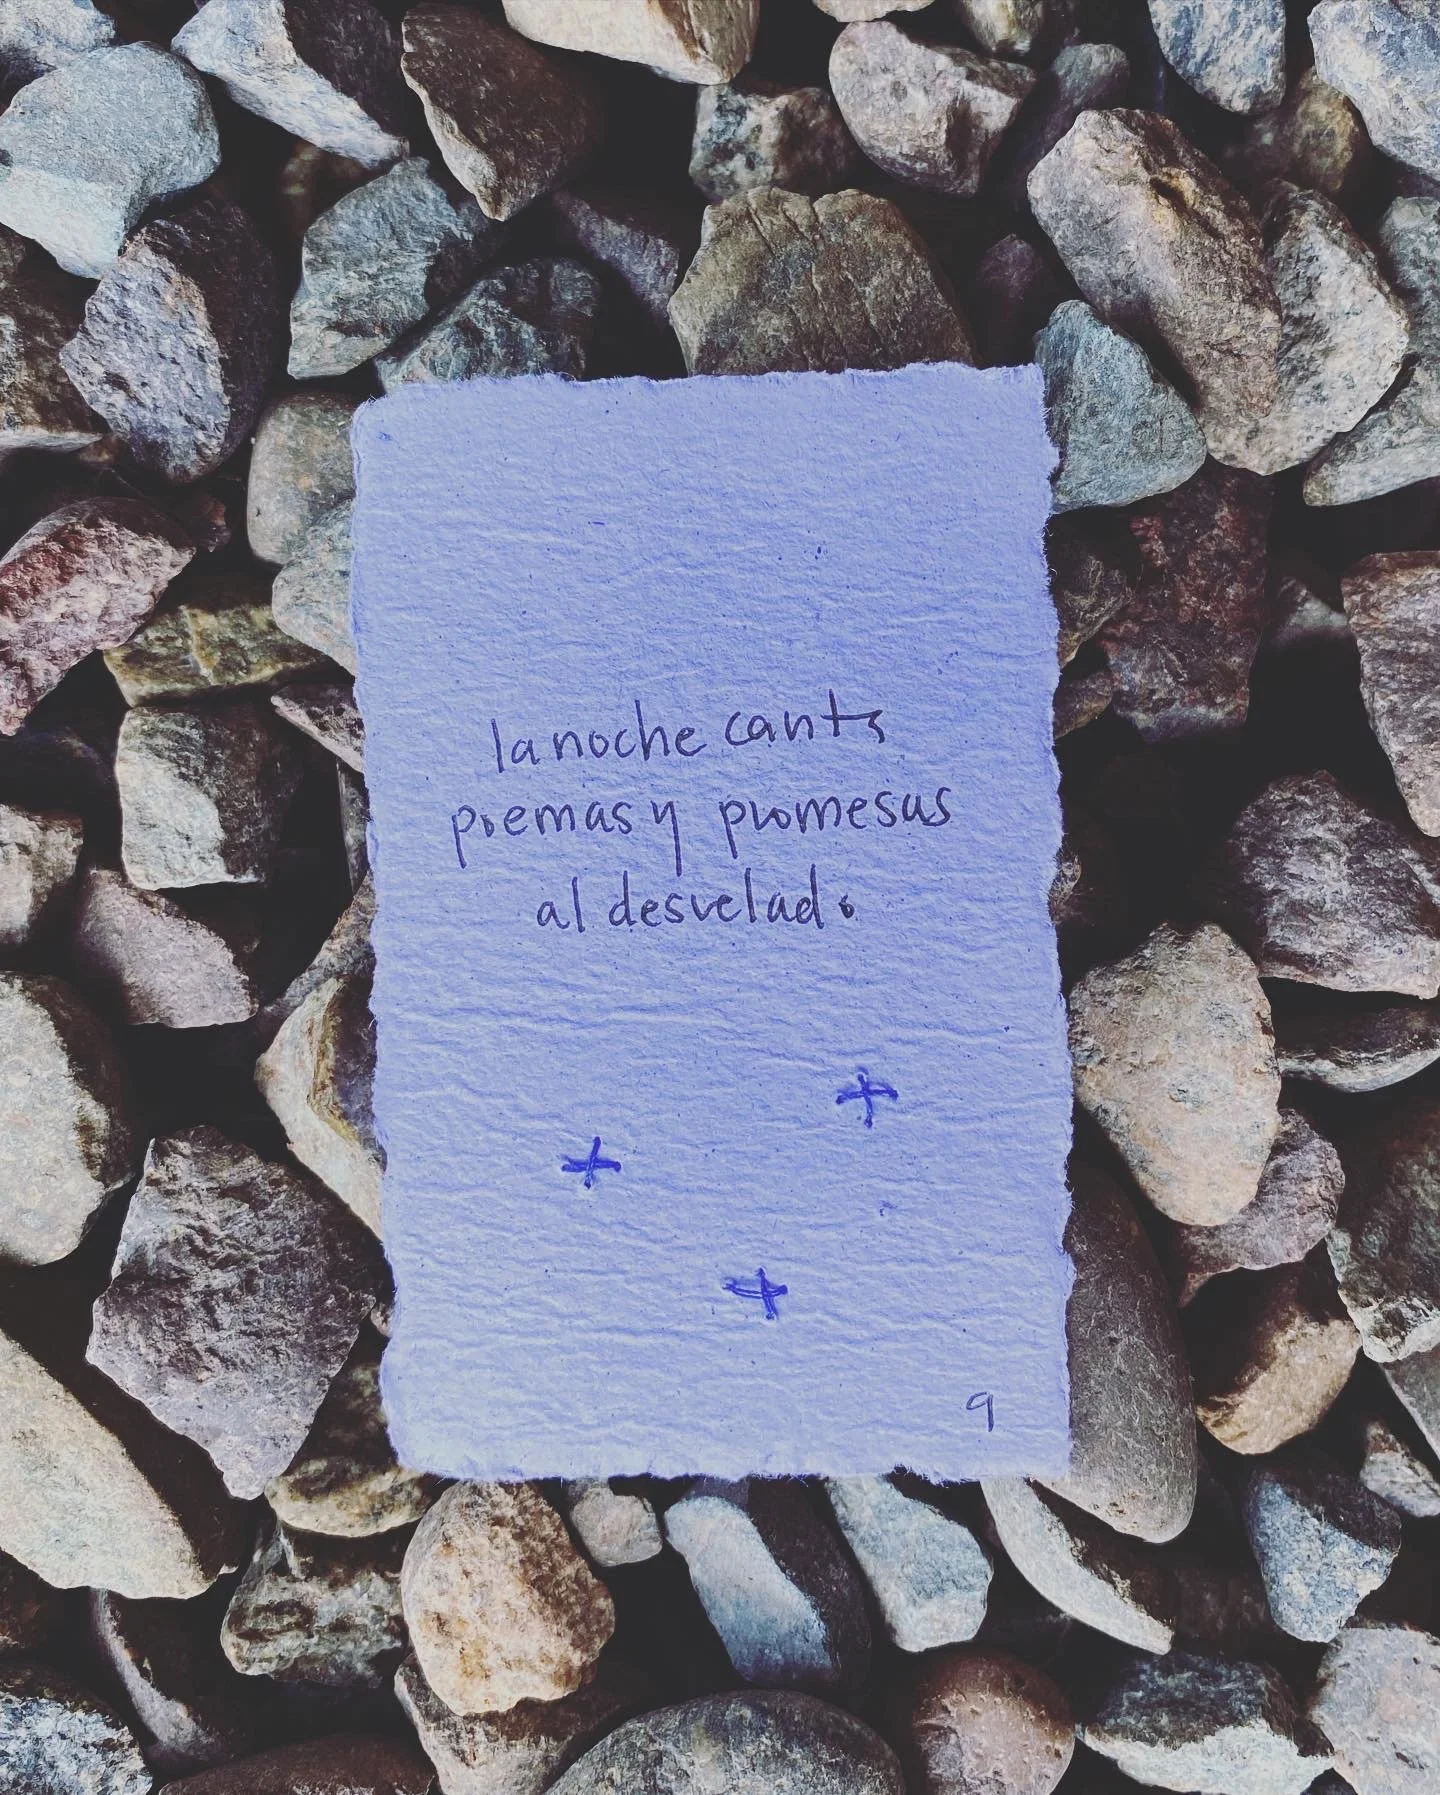 la noche canta
poemas y promesas
al desvelado
9